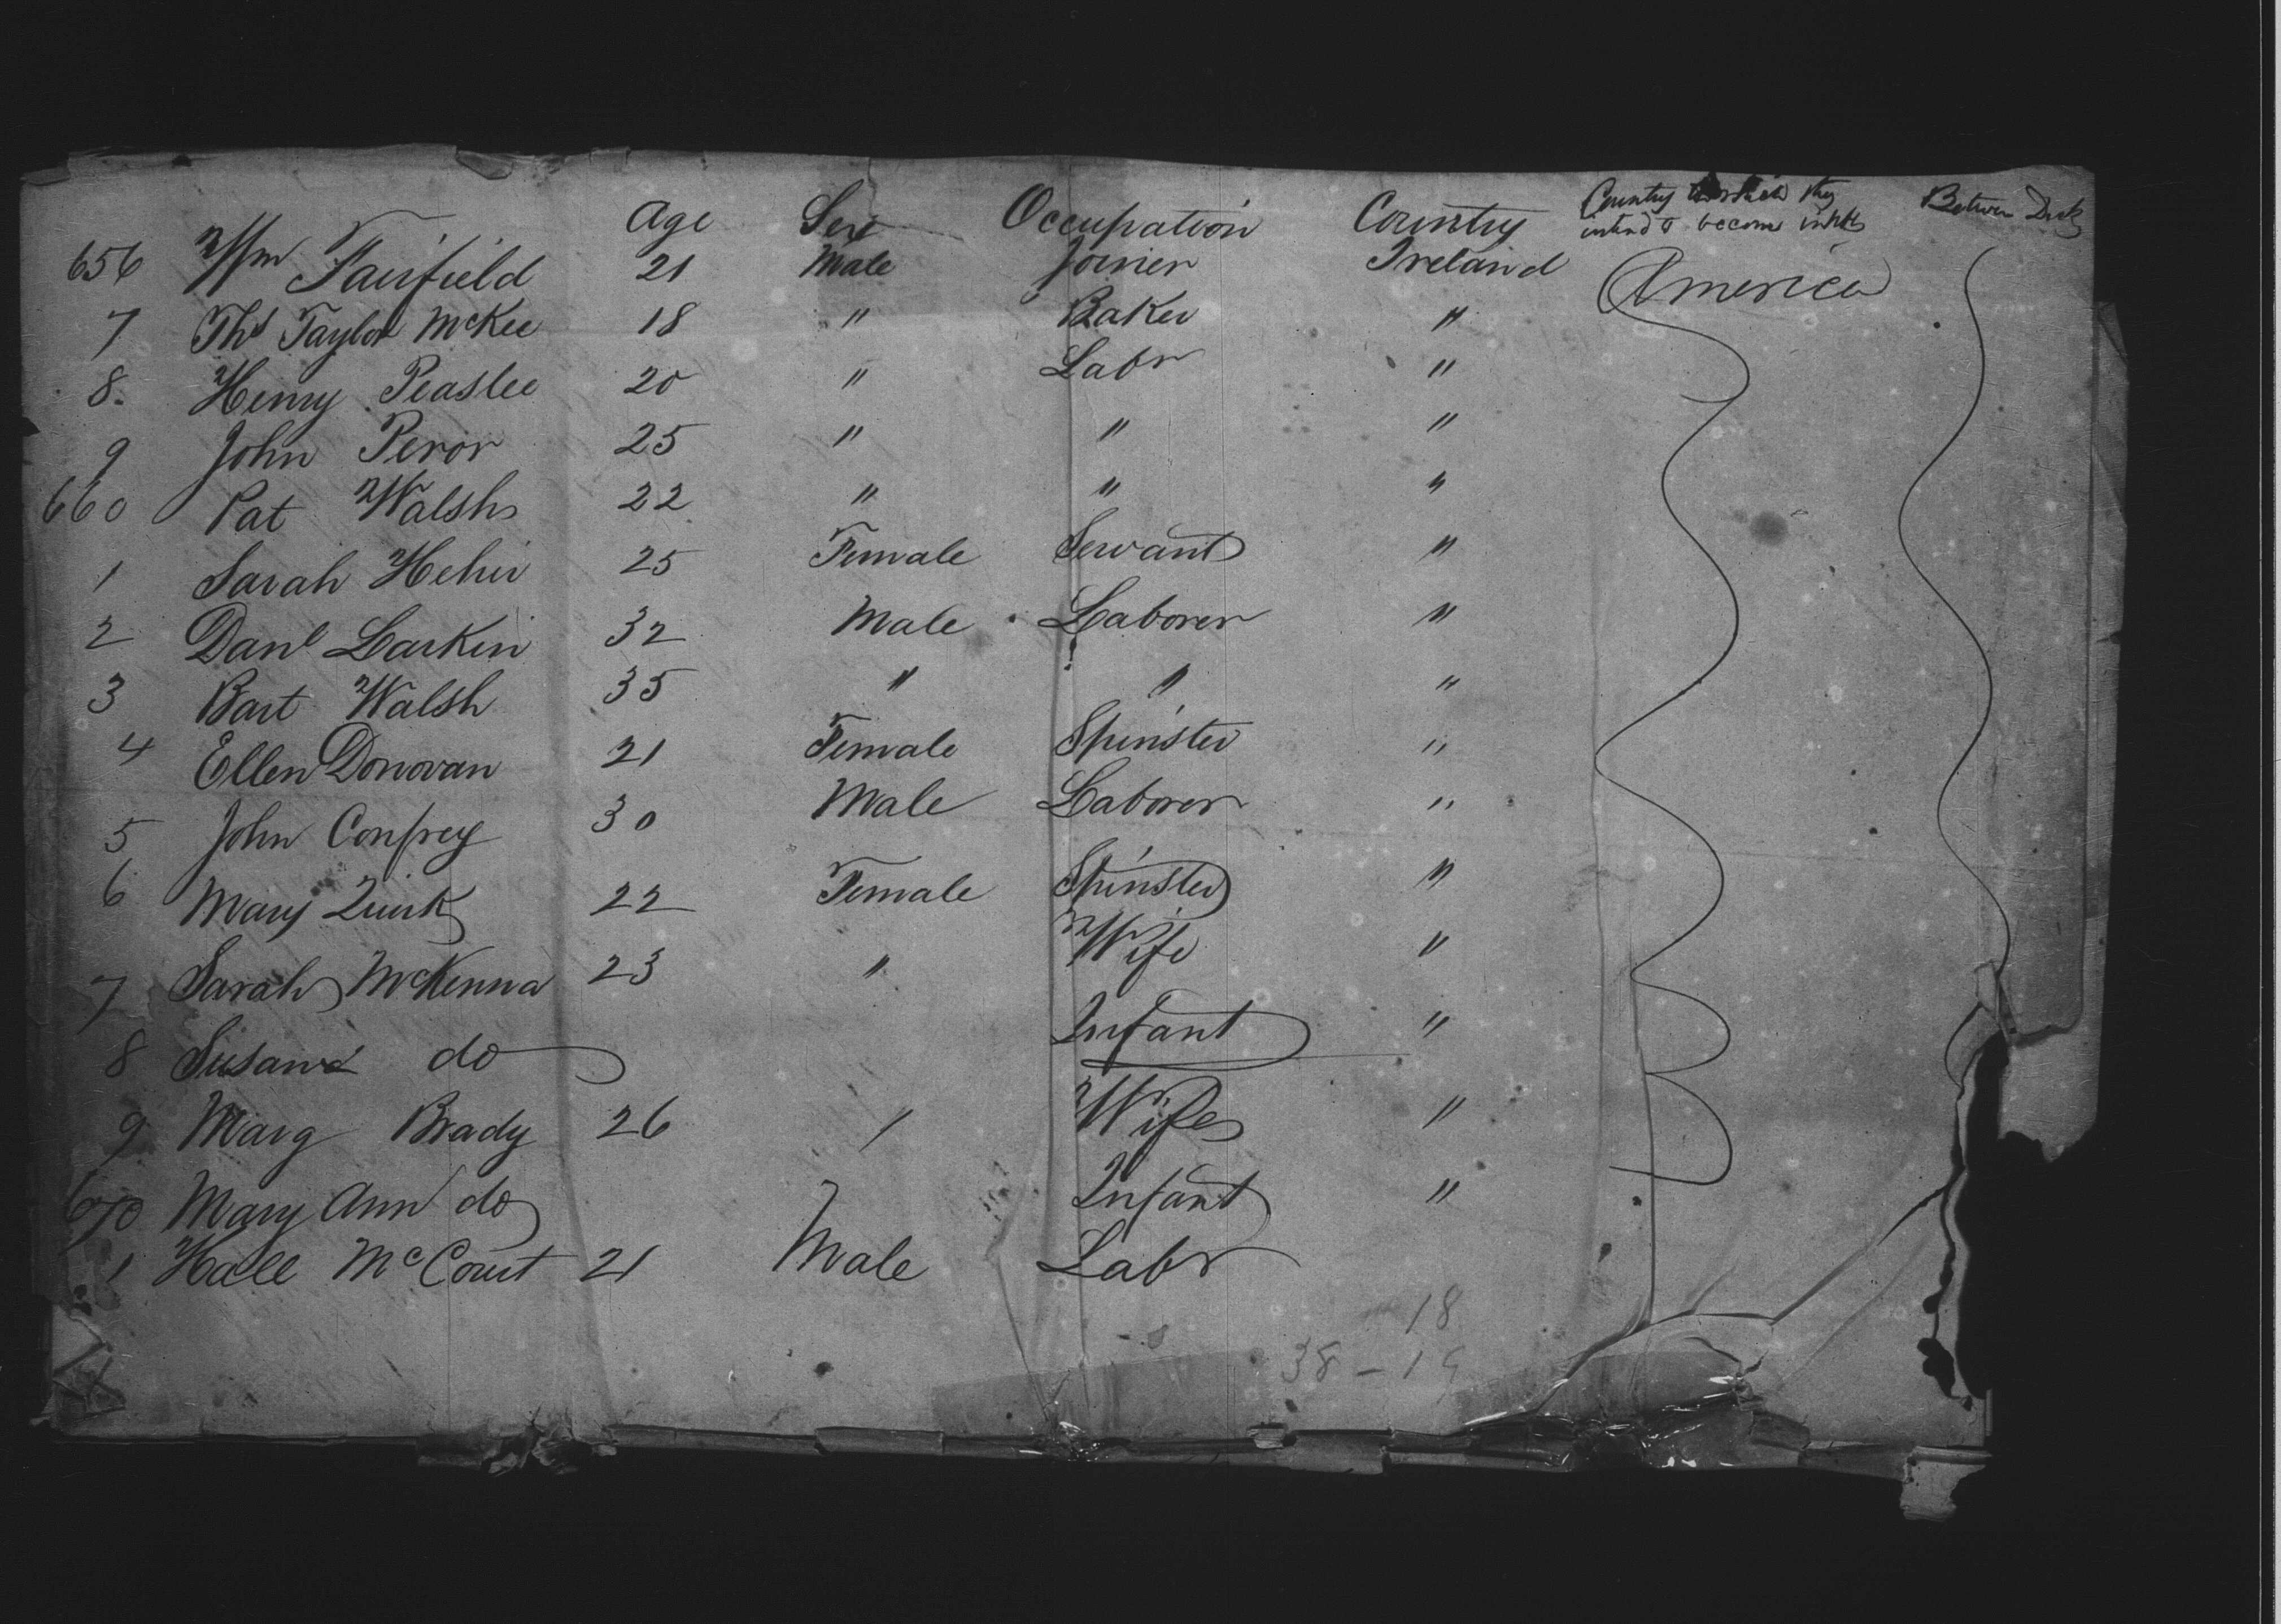 Age Sex Occupation Country Country to which they intend to become inhts Between Decks
656 Wm Fairfield 21 Male Joiner Ireland America
7 Thos Taylor McKee 18 " Baker "
8. Henry Peaslee 20 " Labr "
9 John Peror 25 " " "
660 Pat Walsh 22 " " "
1 Sarah Hehir 25 Female Servant "
2 Danl Larkin 32 Male Laborer "
3 Bart Walsh 35 " " "
4 Ellen Donovan 21 Female Spinster "
5 John Confrey 30 Male Laborer "
6 Mary Quirk 22 Female Spinster "
7 Sarah McKenna 23 " Wife "
8 Susan do Infant "
9 Marg Brady 26 " Wife "
670 Mary Ann do Infant "
1 Hall McCourt 21 Male Labr
18
38-19